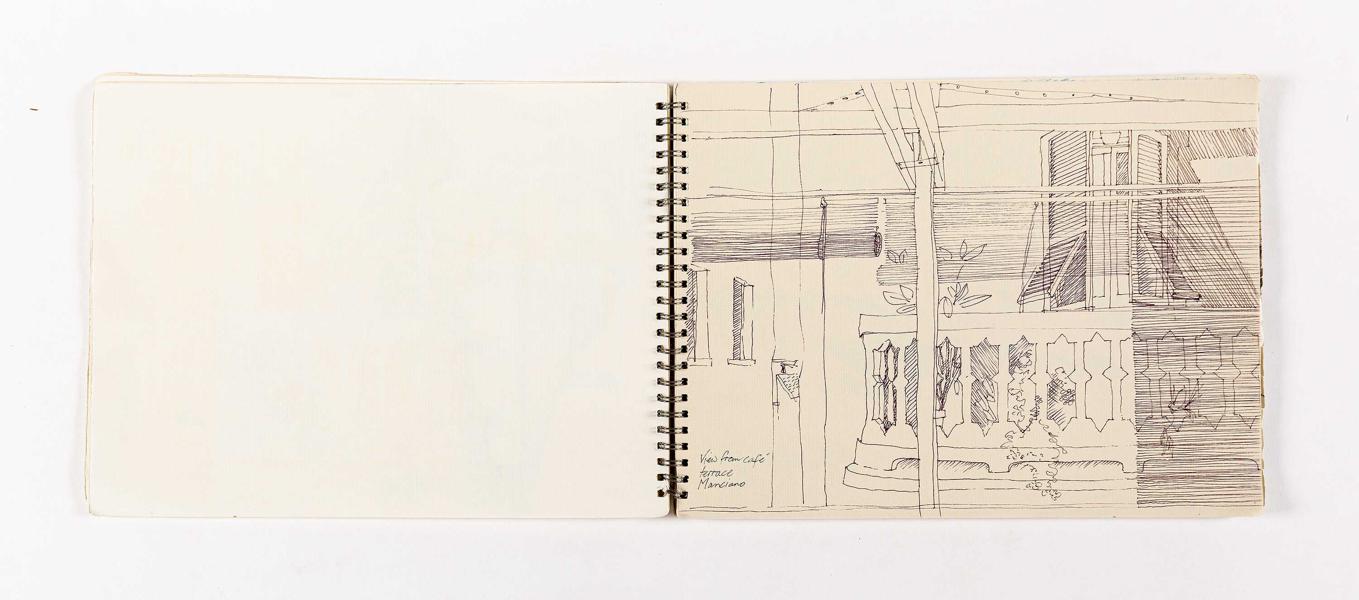 View from café
terrace
Manciano